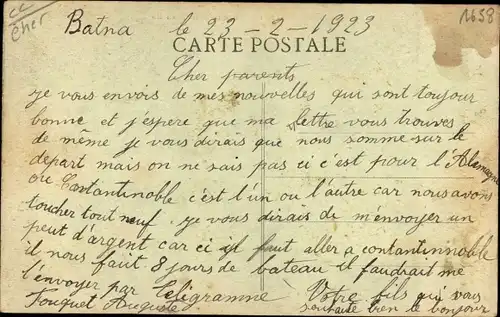 cc
Cher
1658
Batna le 23-2-1923
CARTE POSTALE
Cher parents
je vous envois de mes nouvelles qui sont toujour
bonne et j'espere que ma lettre vous trouves
de même je vous dirais que nous somme sur le
depart mais on ne sais pas ci c'est pour l'Alemagne
ou Constantinoble c'est l'un ou l'autre car nous avons
toucher tout neuf je vous dirais de m'envoyer un
peut d'argent car ci il faut aller a contantinnoble
il nous faut 8 jours de bateau il faudrait me
l'envoyer par Teligramme Votre fils qui vous
Fouquet Auguste souhaite bien le bonjour